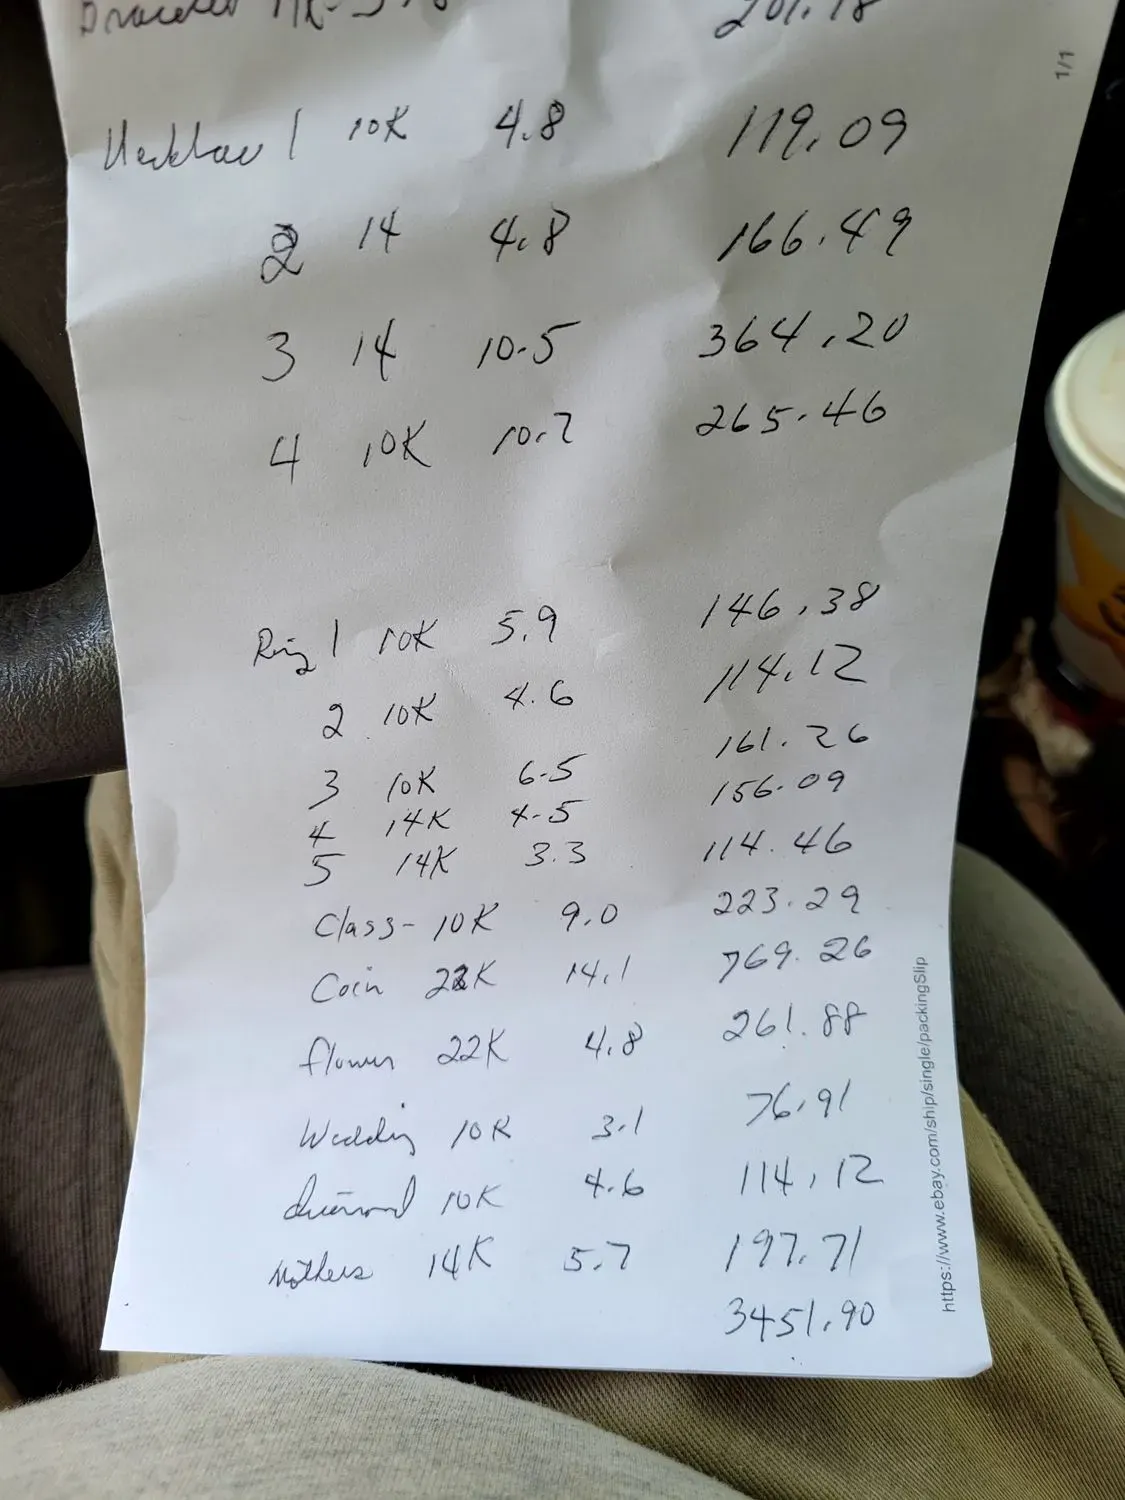 201.18
1/1
Necklace 1 10K 4.8 119.09
2 14 4.8 166.49
3 14 10.5 364.20
4 10K 10.7 265.46
Ring 1 10K 5.9 146.38
2 10K 4.6 114.12
3 10K 6.5 161.26
4 14K 4.5 156.09
5 14K 3.3 114.46
Class- 10K 9.0 223.29
Coin 22K 14.1 769.26
flower 22K 4.8 261.88
Wedding 10K 3.1 76.91
diamond 10K 4.6 114.12
Mothers 14K 5.7 197.71
3451.90
https://www.ebay.com/ship/single/packingSlip